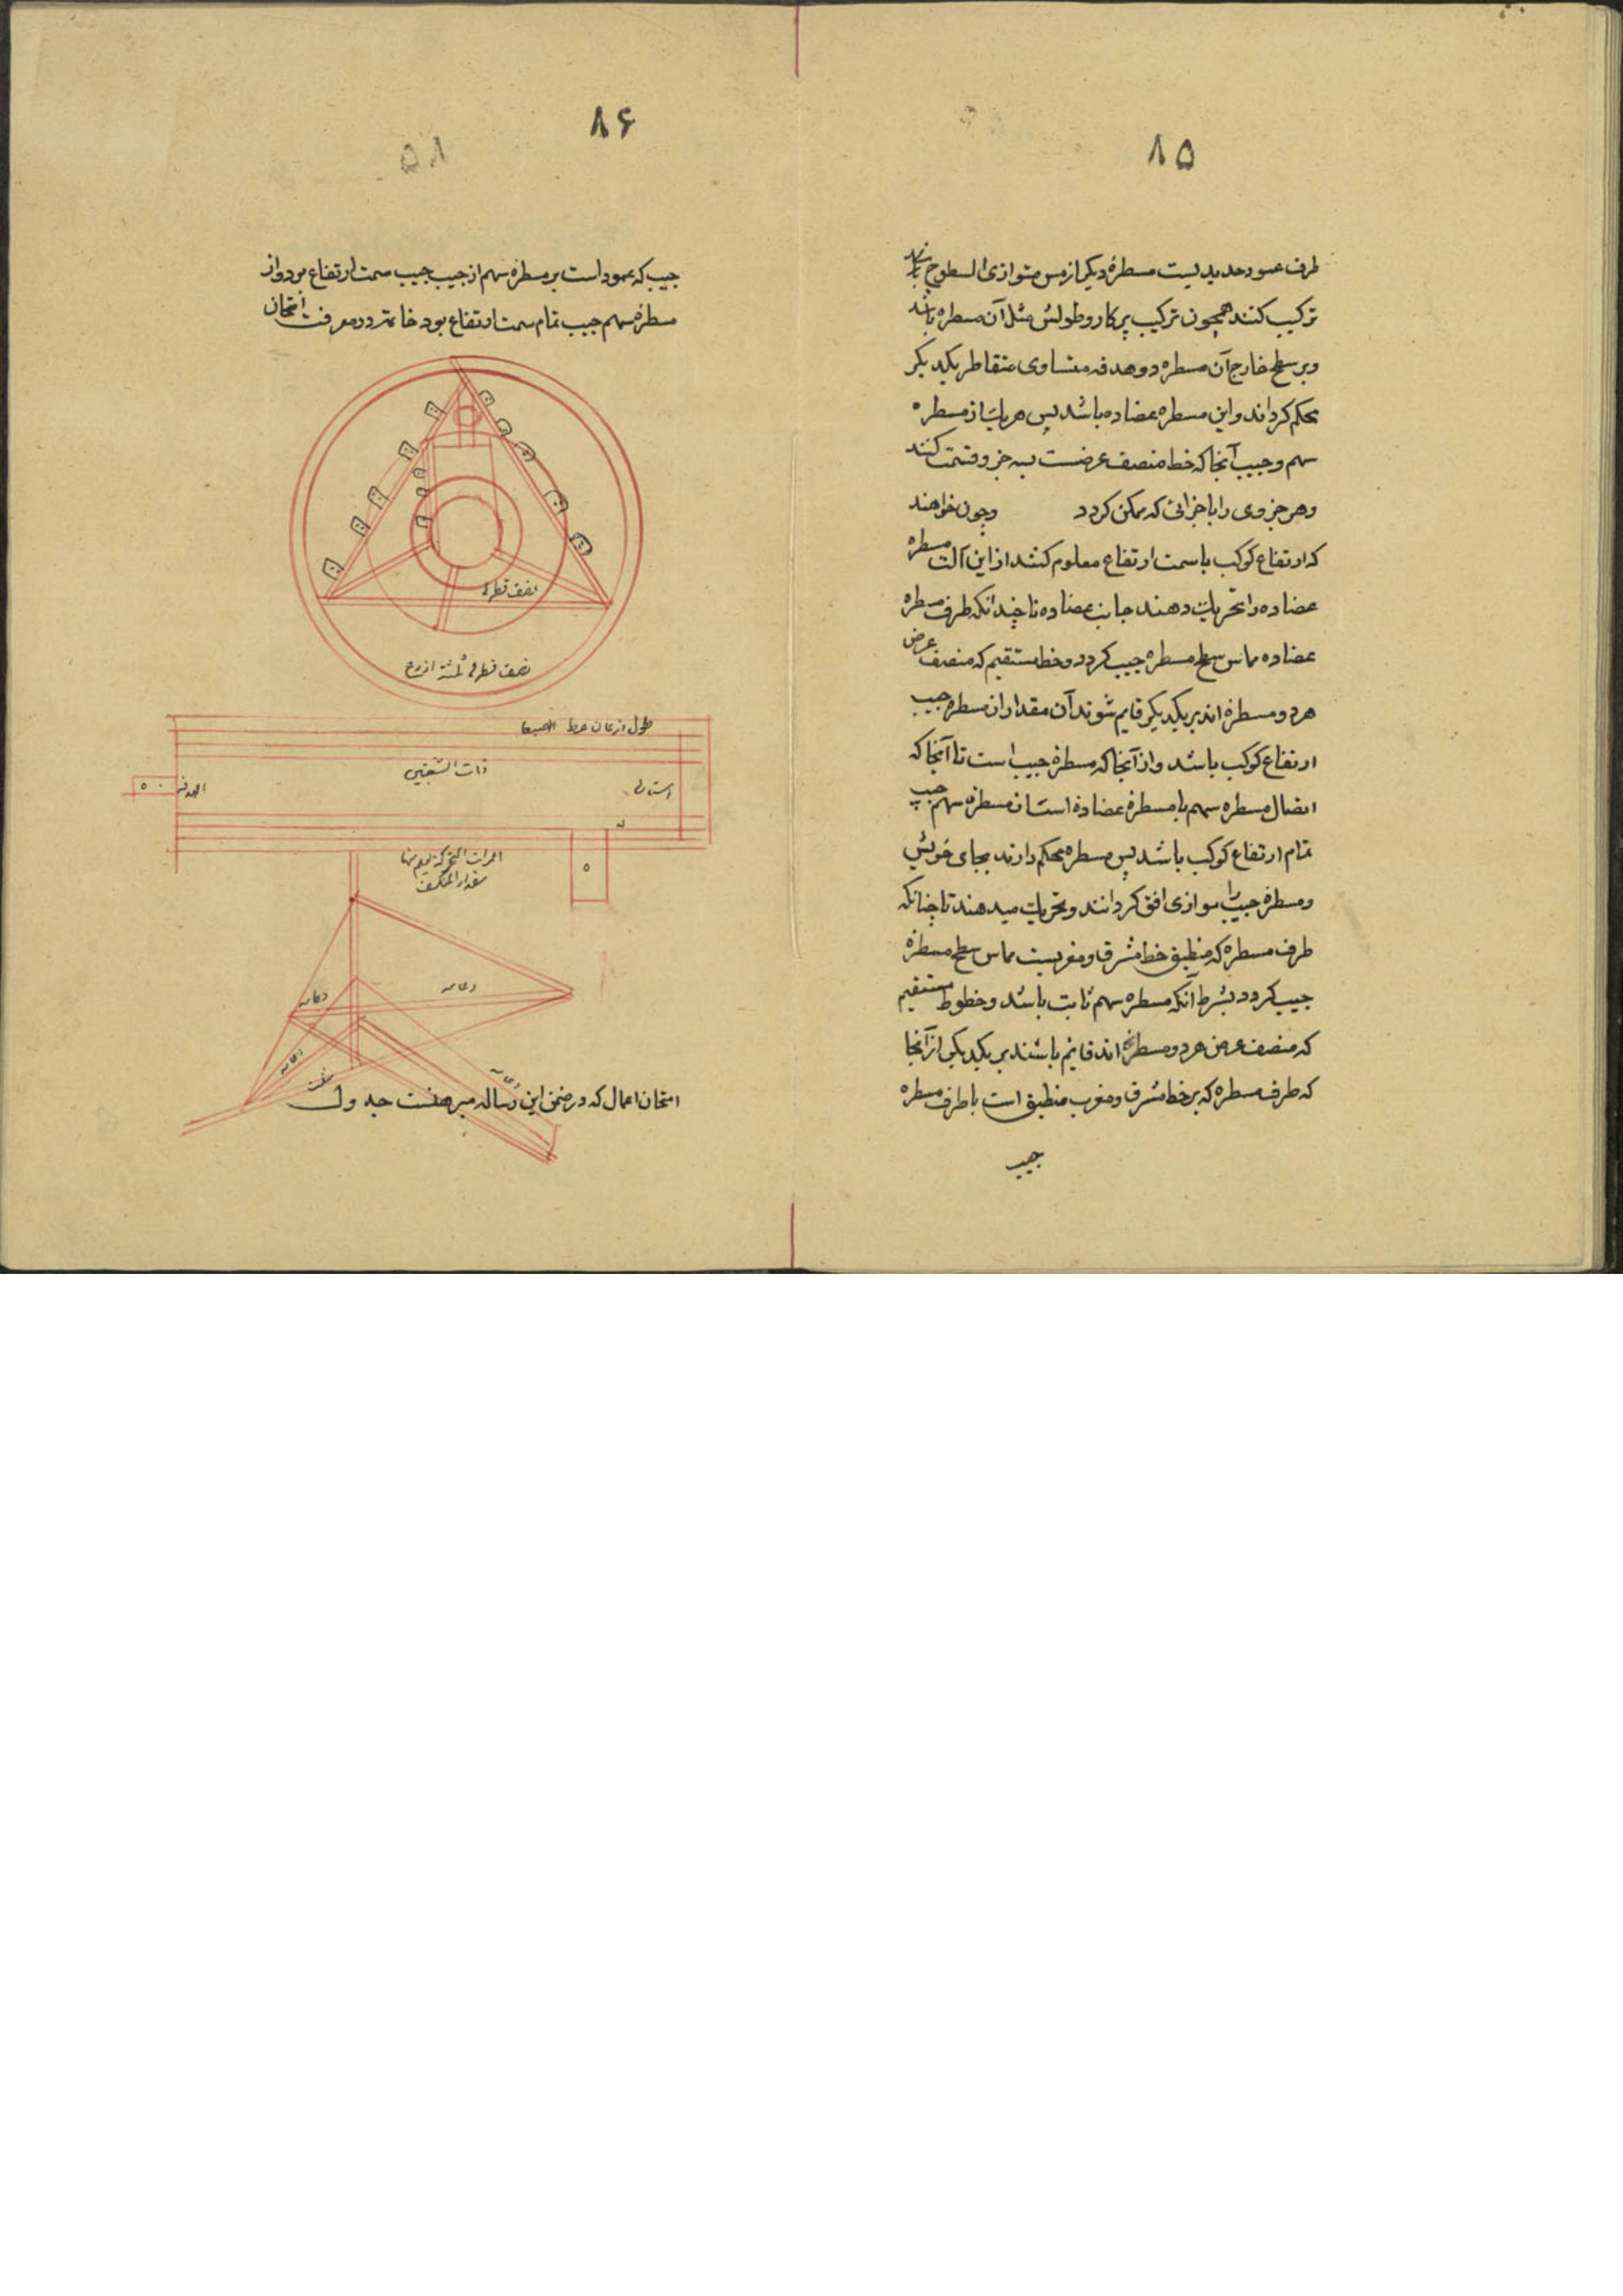 ۸۵
طرف عمود حدیدیست مسطرهٔ دیگر از مس متوازی السطوح
ترکیب کنند همچون ترکیب پرکار و طولش مثل آن مسطره باشد
و بر سطح خارج آن مسطره دو هدفه متساوی متقاطر یکدیگر
محکم کرد اند و این مسطره عضاده باشد پس هر یک از مسطره
سهم و جیب آنجا که خط منصف عرضست بسه جزو قسمت کنند
و هر جزوی را باجزائی که ممکن کردد و چون خواهند
که ارتفاع کوکب با سمت ارتفاع معلوم کنند از این آلت مسطره
عضاده را تحریک دهند جانب عضاده تا چندانکه طرف مسطره
عضاده مماس سطح مسطره جیب کردد و خط مستقیم که منصف عرض
هر دو مسطره اند بر یکدیگر قایم شوند آن مقدار از مسطره جیب
ارتفاع کوکب باشد و از آنجا که مسطرهٔ جیب است تا آنجا که
اتصال مسطره سهم با مسطرهٔ عضادهٔ است از مسطرهٔ سهم جیب
تمام ارتفاع کوکب باشد پس مسطره محکم دارند بجای خویش
و مسطرهٔ جیب را موازی افق کردانند و تحریک میدهند تا چنانکه
طرف مسطره که منطبق خط مشرق و مغربست مماس سطح مسطرهٔ
جیب کردد بشرط آنکه مسطره سهم ثابت باشد و خطوط مستقیم
که منصف عرض هر دو مسطره اند قایم باشند بر یکدیگر از آنجا
که طرف مسطره که بر خط مشرق و مغرب منطبق است با طرف مسطره
جیب
۸۶
۵۸
جیب که عمود است بر مسطرهٔ سهم از جیب جیب سمت ارتفاع بود و از
مسطرهٔ سهم جیب تمام سمت ارتفاع بود خاتمه در معرفت امتحان
نصف قطره
نصف قطره ثلثة اذرع
طول
ذات الشعبتین
دعامه
دعامه
دعامه
دعامه
امتحان اعمال که در ضمن این رساله مبرهنست جدول